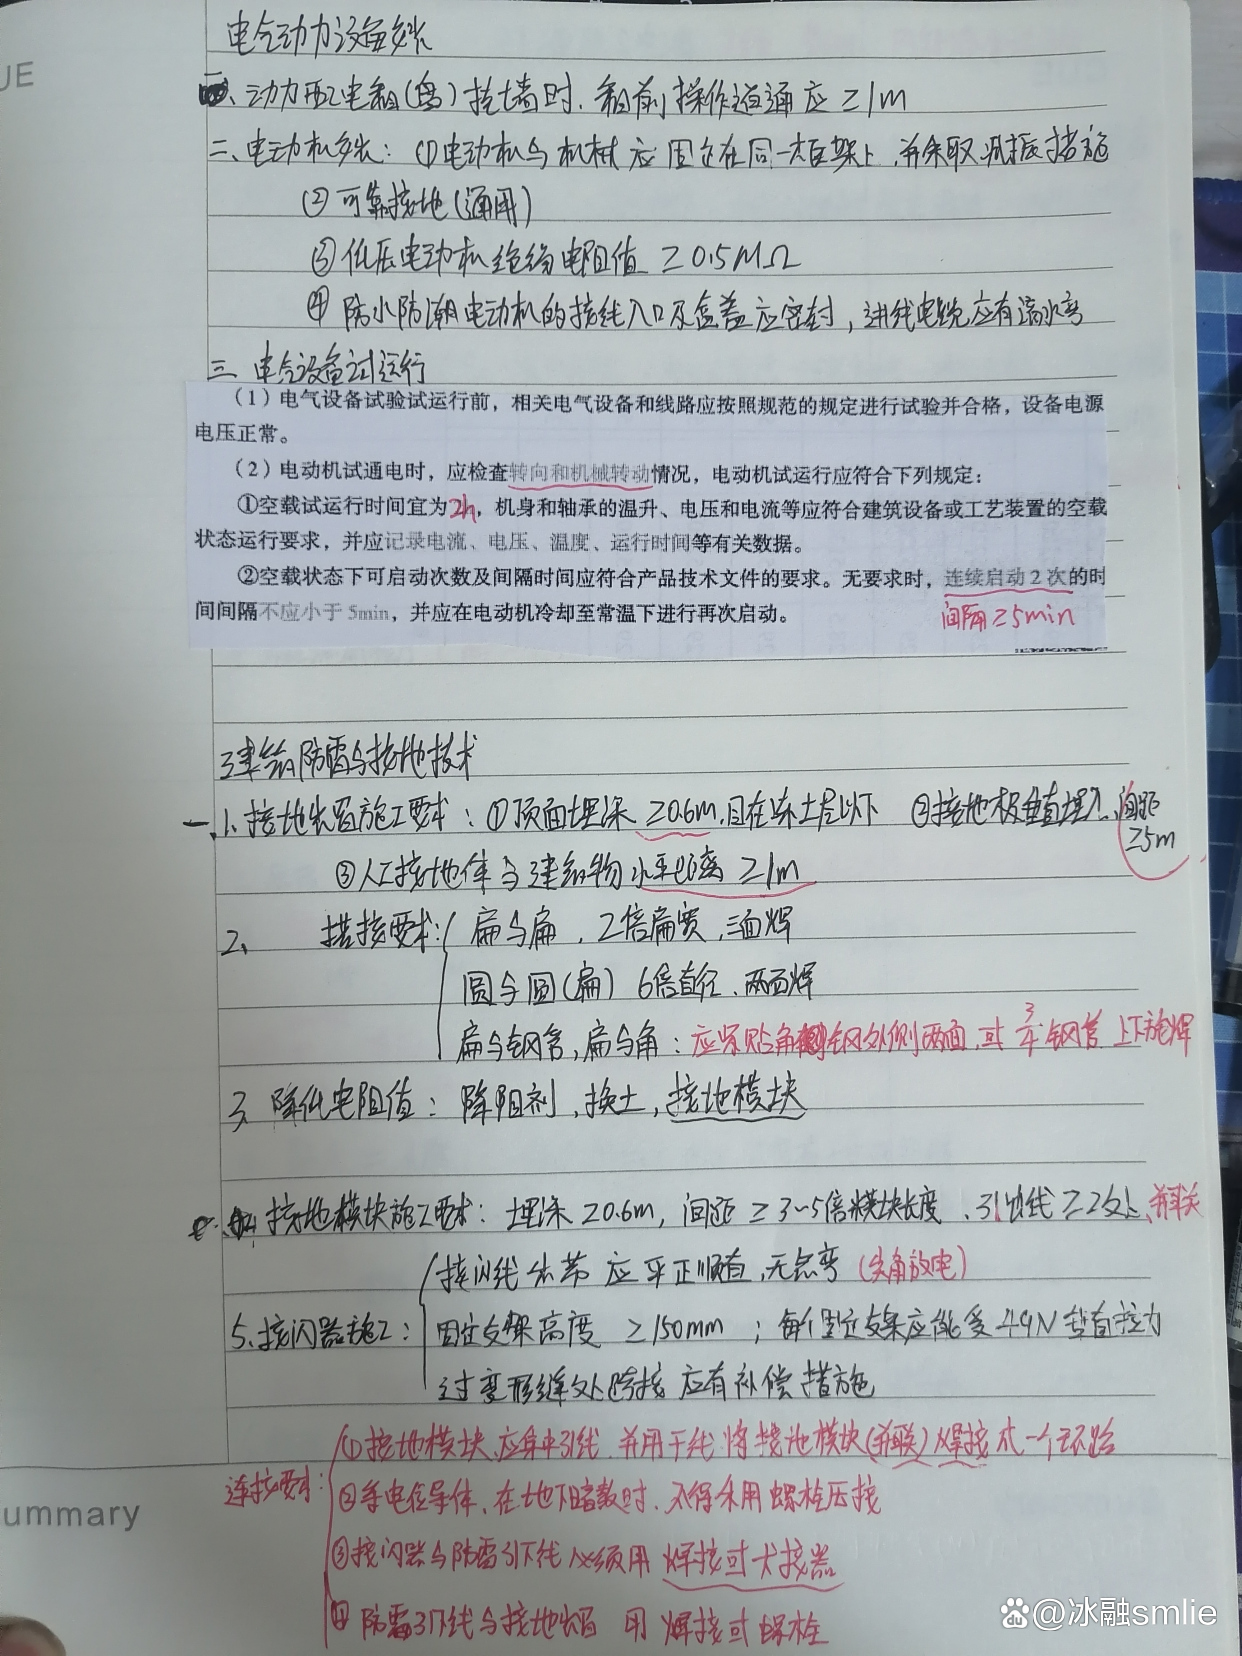 UE
电气动力设备安装
一、动力配电箱(盘)挂墙时、箱前操作通道应≥1m
二、电动机安装：①电动机与机械应固定在同一框架上，并采取减振措施
②可靠接地(通用)
③低压电动机绝缘电阻值≥0.5MΩ
④防水防潮电动机的接线入口及盒盖应密封，进线电缆应有滴水弯
三、电气设备试运行
（1）电气设备试验试运行前，相关电气设备和线路应按照规范的规定进行试验并合格，设备电源
电压正常。
（2）电动机试通电时，应检查转向和机械转动情况，电动机试运行应符合下列规定：
①空载试运行时间宜为2h，机身和轴承的温升、电压和电流等应符合建筑设备或工艺装置的空载
状态运行要求，并应记录电流、电压、温度、运行时间等有关数据。
②空载状态下可启动次数及间隔时间应符合产品技术文件的要求。无要求时，连续启动2次的时
间间隔不应小于5min，并应在电动机冷却至常温下进行再次启动。
间隔≥5min
建筑防雷与接地技术
一、1、接地装置施工要求：①顶面埋深≥0.6m，且在冻土层以下 ②接地极垂直埋入、间距
≥5m
③人工接地体与建筑物水平距离≥1m
2、搭接要求：扁与扁，2倍扁宽，三面焊
圆与圆(扁) 6倍直径、两面焊
扁与钢管，扁与角：应紧贴角钢外侧两面，或3/4钢管上下施焊
3、降低电阻值：降阻剂，换土，接地模块
4、接地模块施工要求：埋深≥0.6m，间距≥3~5倍模块长度、引出线≥2处、并联
接闪线和带应平正顺直，无急弯(尖角放电)
5、接闪器施工：固定支架高度≥150mm；每个固定支架应能受49N垂直拉力
过变形缝处跨接应有补偿措施
①接地模块应集中引线，并用干线将接地模块(并联)焊接成一个环路
连接要求：②等电位导体、在地下暗敷时、不得采用螺栓压接
③接闪器与防雷引下线必须用焊接或卡接器
ummary
④防雷引下线与接地装置用焊接或螺栓
Baidu @冰融smlie